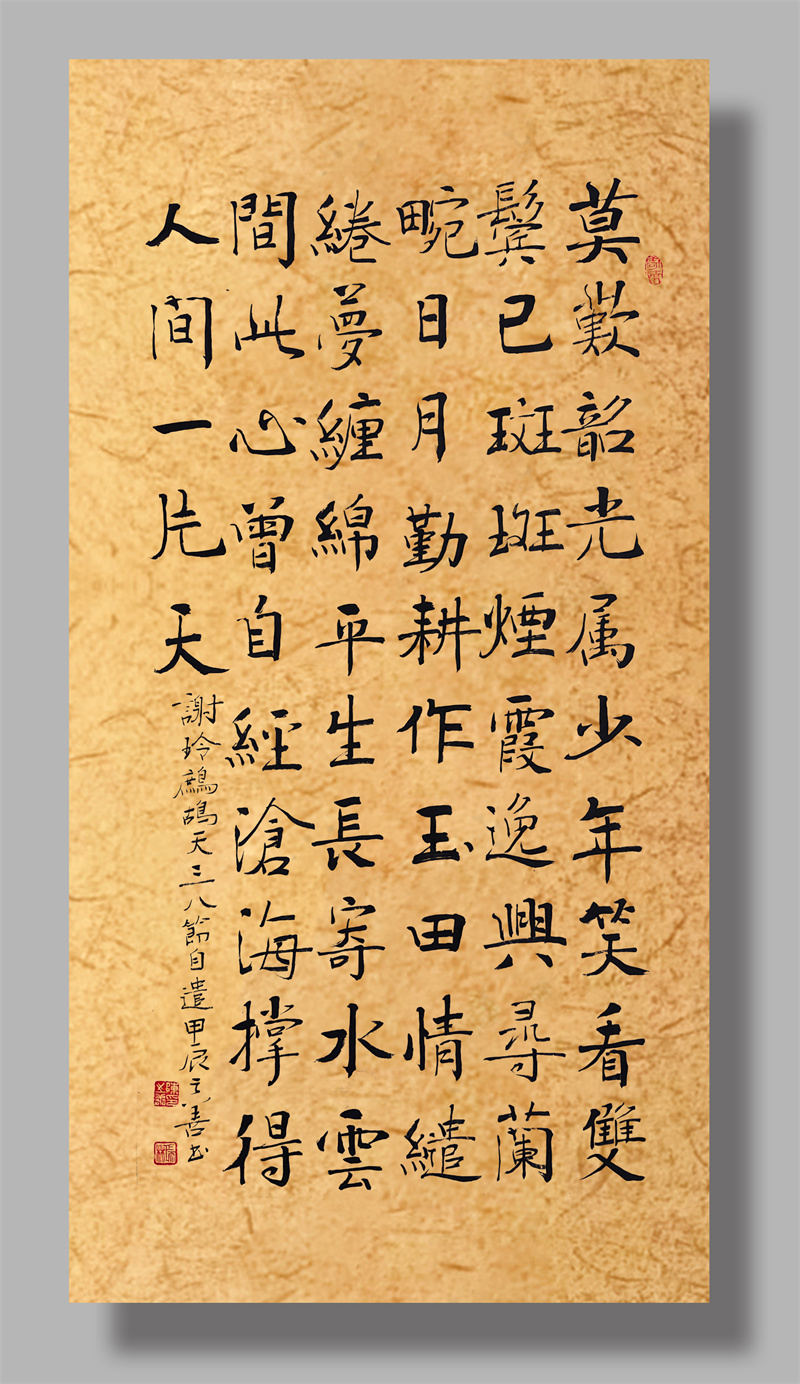 莫歎韶光属少年笑看雙
鬓已斑斑煙霞逸興尋蘭
畹日月勤耕作玉田情繾
綣夢纏綿平生長寄水雲
間此心曾自經滄海撑得
人间一片天
謝玲鷓鴣天三八節自遣甲辰之善书